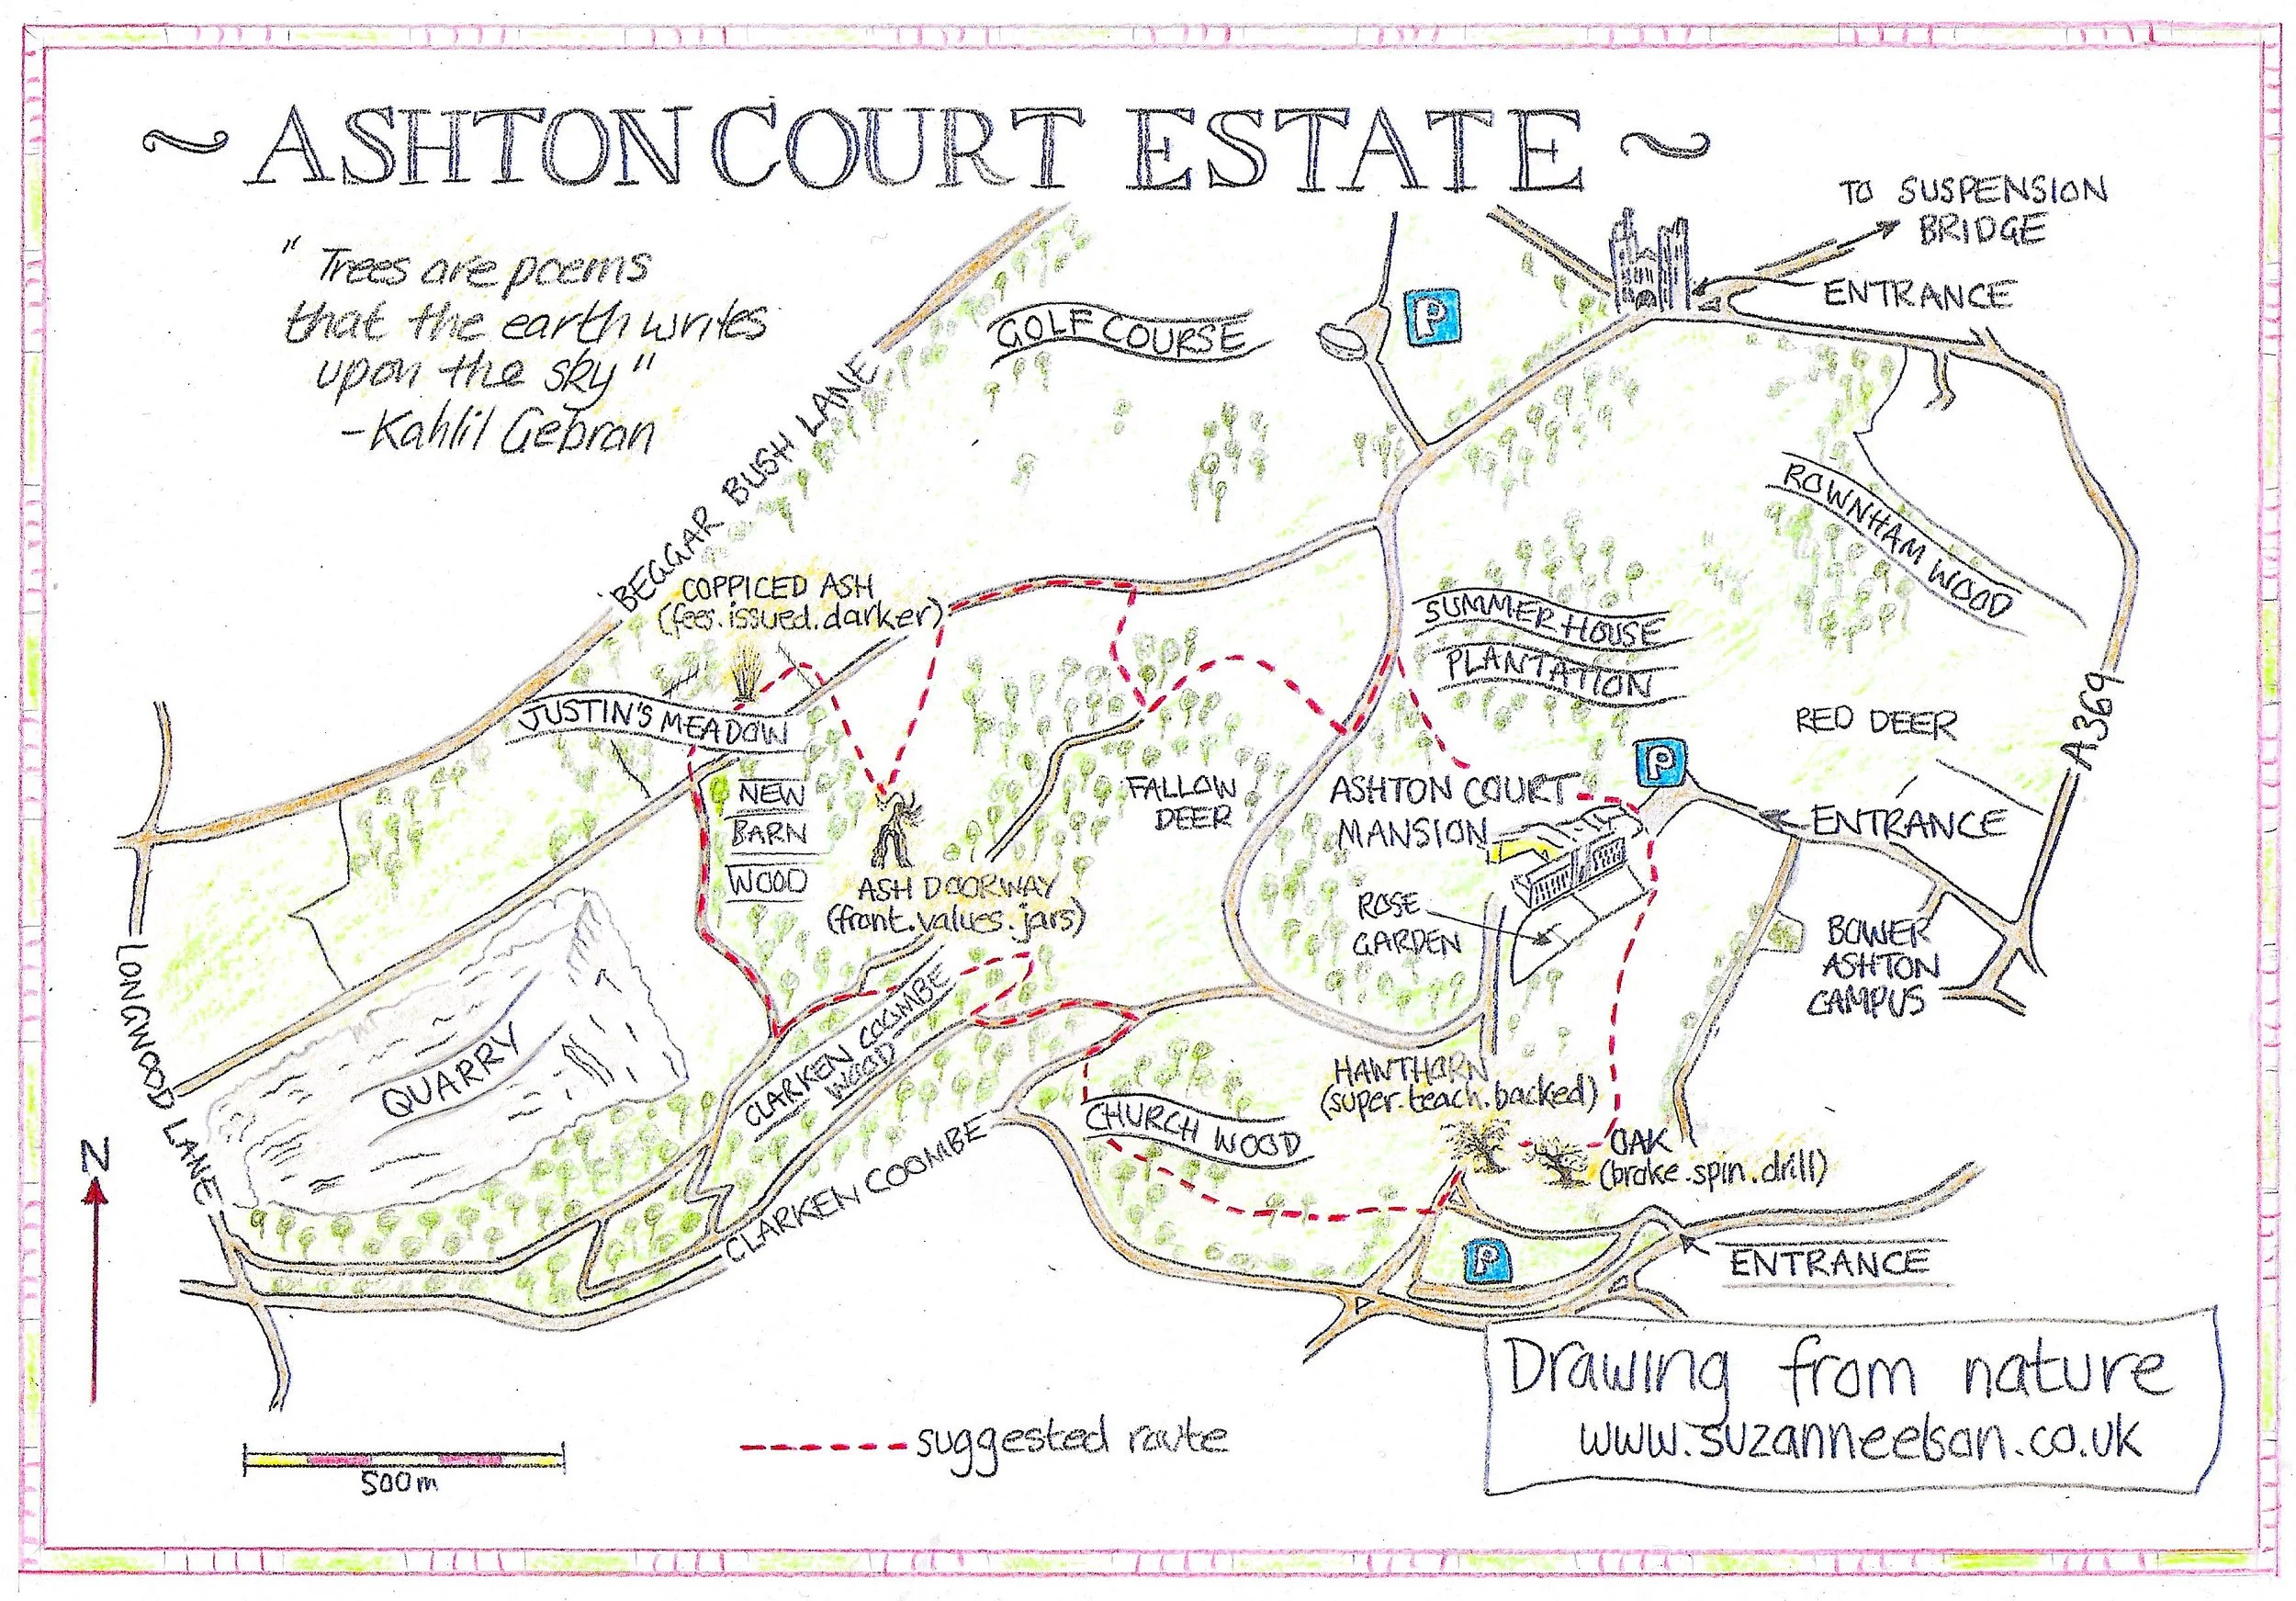 ~ ASHTON COURT ESTATE ~
TO SUSPENSION
BRIDGE
ENTRANCE
" Trees are poems
that the earth writes
upon the sky "
- Kahlil Gebran
GOLF COURSE
P
BEGGAR BUSH LANE
ROWNHAM WOOD
COPPICED ASH
(fees.issued.darker)
SUMMER HOUSE
PLANTATION
JUSTIN'S MEADOW
RED DEER
A369
P
NEW
BARN
WOOD
FALLOW
DEER
ASHTON COURT
MANSION
ENTRANCE
ASH DOORWAY
(front.values.jars)
ROSE
GARDEN
BOWER
ASHTON
CAMPUS
LONGWOOD LANE
QUARRY
CLARKEN COOMBE
WOOD
HAWTHORN
(super.teach.backed)
CHURCH WOOD
OAK
(brake.spin.drill)
CLARKEN COOMBE
N
P
ENTRANCE
500m
suggested route
Drawing from nature
www.suzanneelson.co.uk